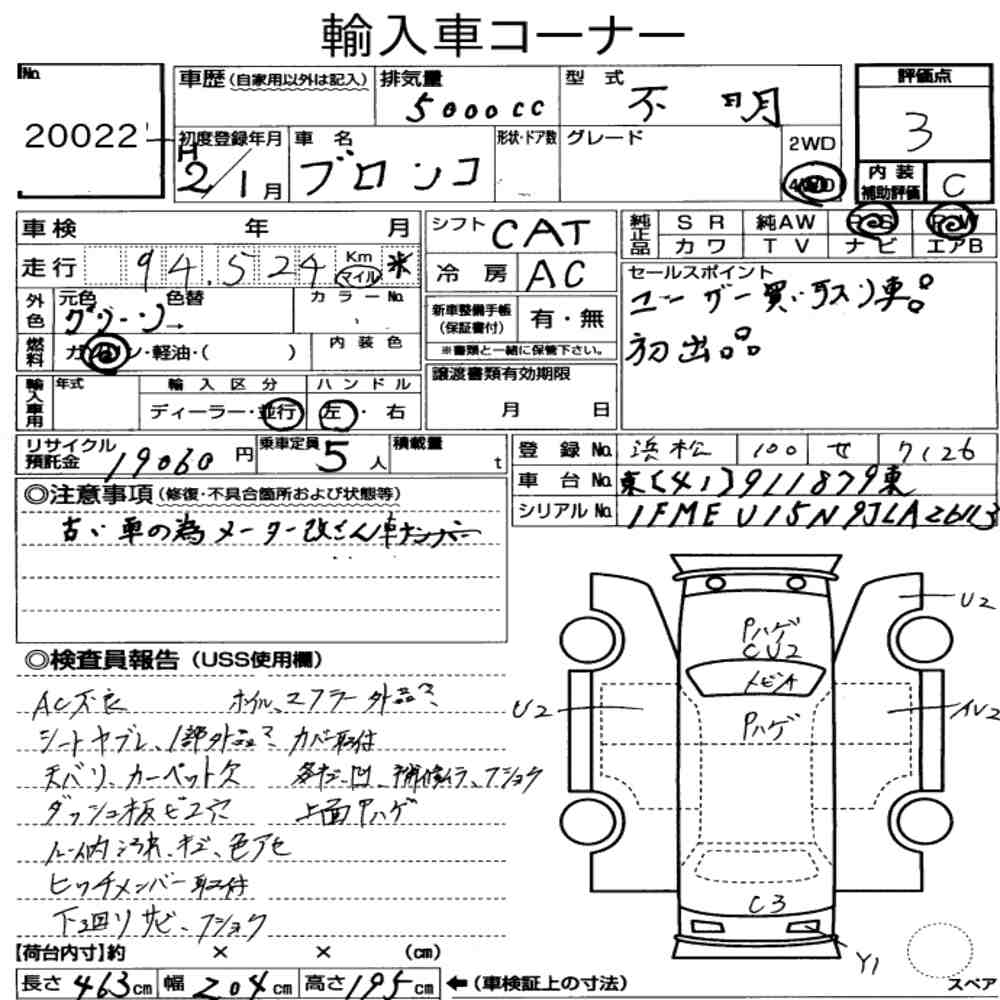 輸入車コーナー
No.
20022
車歴 (自家用以外は記入)
排気量
5000cc
型式
不明
評価点
3
初度登録年月
H2/1月
車名
ブロンコ
形状・ドア数
グレード
2WD
4WD
内装補助評価
C
車検 年 月
シフト
CAT
純正品
SR 純AW PS PW
カワ TV ナビ エアB
走行
94,524
Km
マイル
冷房
AC
セールスポイント
ユーザー買い取り車。
初出品。
外色
元色 色替
グリーン→
カラーNo.
新車整備手帳
(保証書付)
有・無
※書類と一緒に保管下さい。
燃料
ガソリン・軽油・( )
内装色
譲渡書類有効期限
月 日
輸入車用
年式
輸入区分
ディーラー・並行
ハンドル
左・右
リサイクル預託金
19060円
乗車定員
5人
積載量
t
登録No.
浜松 100 せ 7126
車台No.
東[41]911879東
シリアルNo.
◎注意事項 (修復・不具合箇所および状態等)
古い車の為メーター改ざん車
◎検査員報告 (USS使用欄)
AC不良
シートヤブレ、1部外品?
カバー取付
天バリ、カーペット欠
ダッシュ板ビス穴
上面Pハゲ
ルーム内汚れ、キズ、色アセ
ヒッチメンバー取付
下回りサビ、フショク
Pハゲ
CU2
トビA
Pハゲ
U2
U2
C3
Y1
スペア
【荷台内寸】約 × × (cm)
長さ 463cm 幅 204cm 高さ 195cm ←(車検証上の寸法)